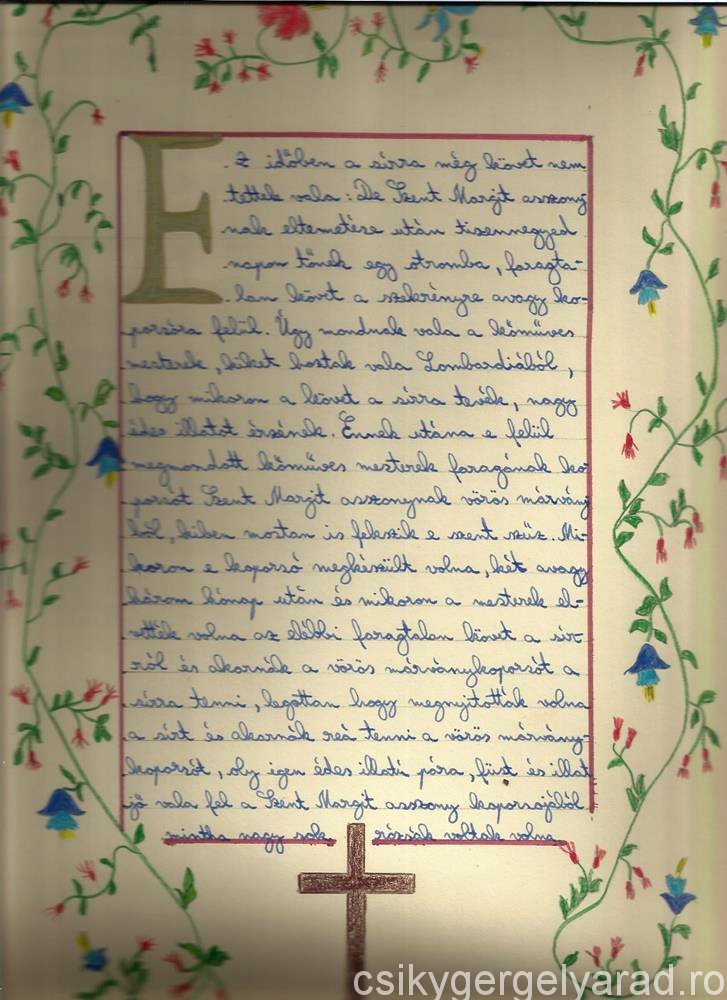 Ez időben a sírra még követ nem
tettek vala: De Szent Margit asszony
nak eltemetése után tizennegyed
napon tőnek egy otromba, faragta-
lan követ a szekrényre avagy ko-
porsóra felül. Úgy mondnak vala a kőműves
mesterek, kiket hoztak vala Lombardiából,
hogy mikoron a követ a sírra tevék, nagy
édes illatot érzének. Ennek utána e felül
megmondott kőműves mesterek faragának ko-
porsót Szent Margit asszonynak vörös márvány
ból, kiben mostan is fekszik e szent szűz. Mi-
koron e koporsó megkészült volna, két avagy
három hónap után és mikoron a mesterek el-
vették volna az elébbi faragtalan követ a sír-
ról és akarnák a vörös márványkoporsót a
sírra tenni, legottan hogy megnyitották volna
a sírt és akarnák reá tenni a vörös márvány-
koporsót, oly igen édes illatú pára, füst és illat
jő vala fel a Szent Margit asszony koporsójából
mintha nagy sok rózsák voltak volna
csikygergelyarad.ro